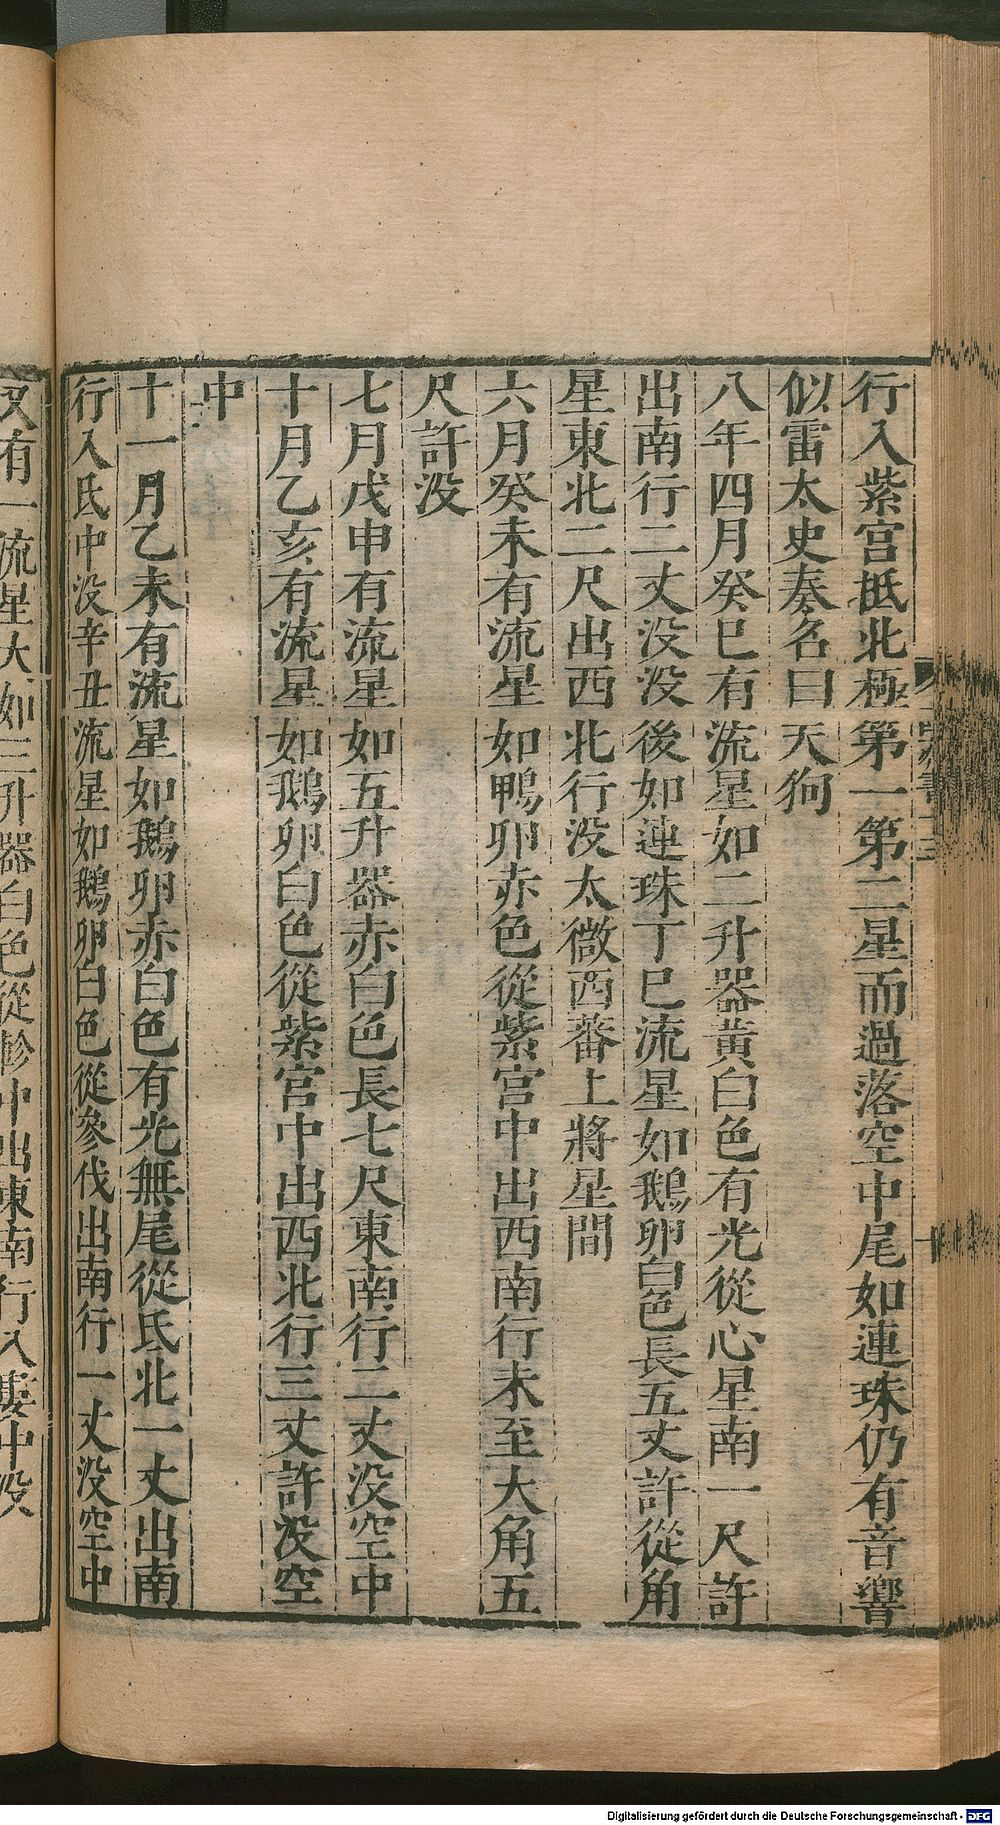 行入紫宫抵北極第一第二星而過落空中尾如連珠仍有音響
似雷太史奏名曰天狗
八年四月癸巳有流星如二升器黃白色有光從心星南一尺許
出南行二丈没没後如連珠丁巳流星如鵝卵白色長五丈許從角
星東北二尺出西北行没太微西蕃上將星間
六月癸未有流星如鴨卵赤色從紫宫中出西南行未至大角五
尺許没
七月戊申有流星如五升器赤白色長七尺東南行二丈没空中
十月乙亥有流星如鵝卵白色從紫宫中出西北行三丈許没空
中
十一月乙未有流星如鵝卵赤白色有光無尾從氐北一丈出南
行入氐中没辛丑流星如鵝卵白色從參伐出南行一丈没空中
又有一流星大如三升器白色從軫中出東南行入婁中没
Digitalisierung gefördert durch die Deutsche Forschungsgemeinschaft - DFG